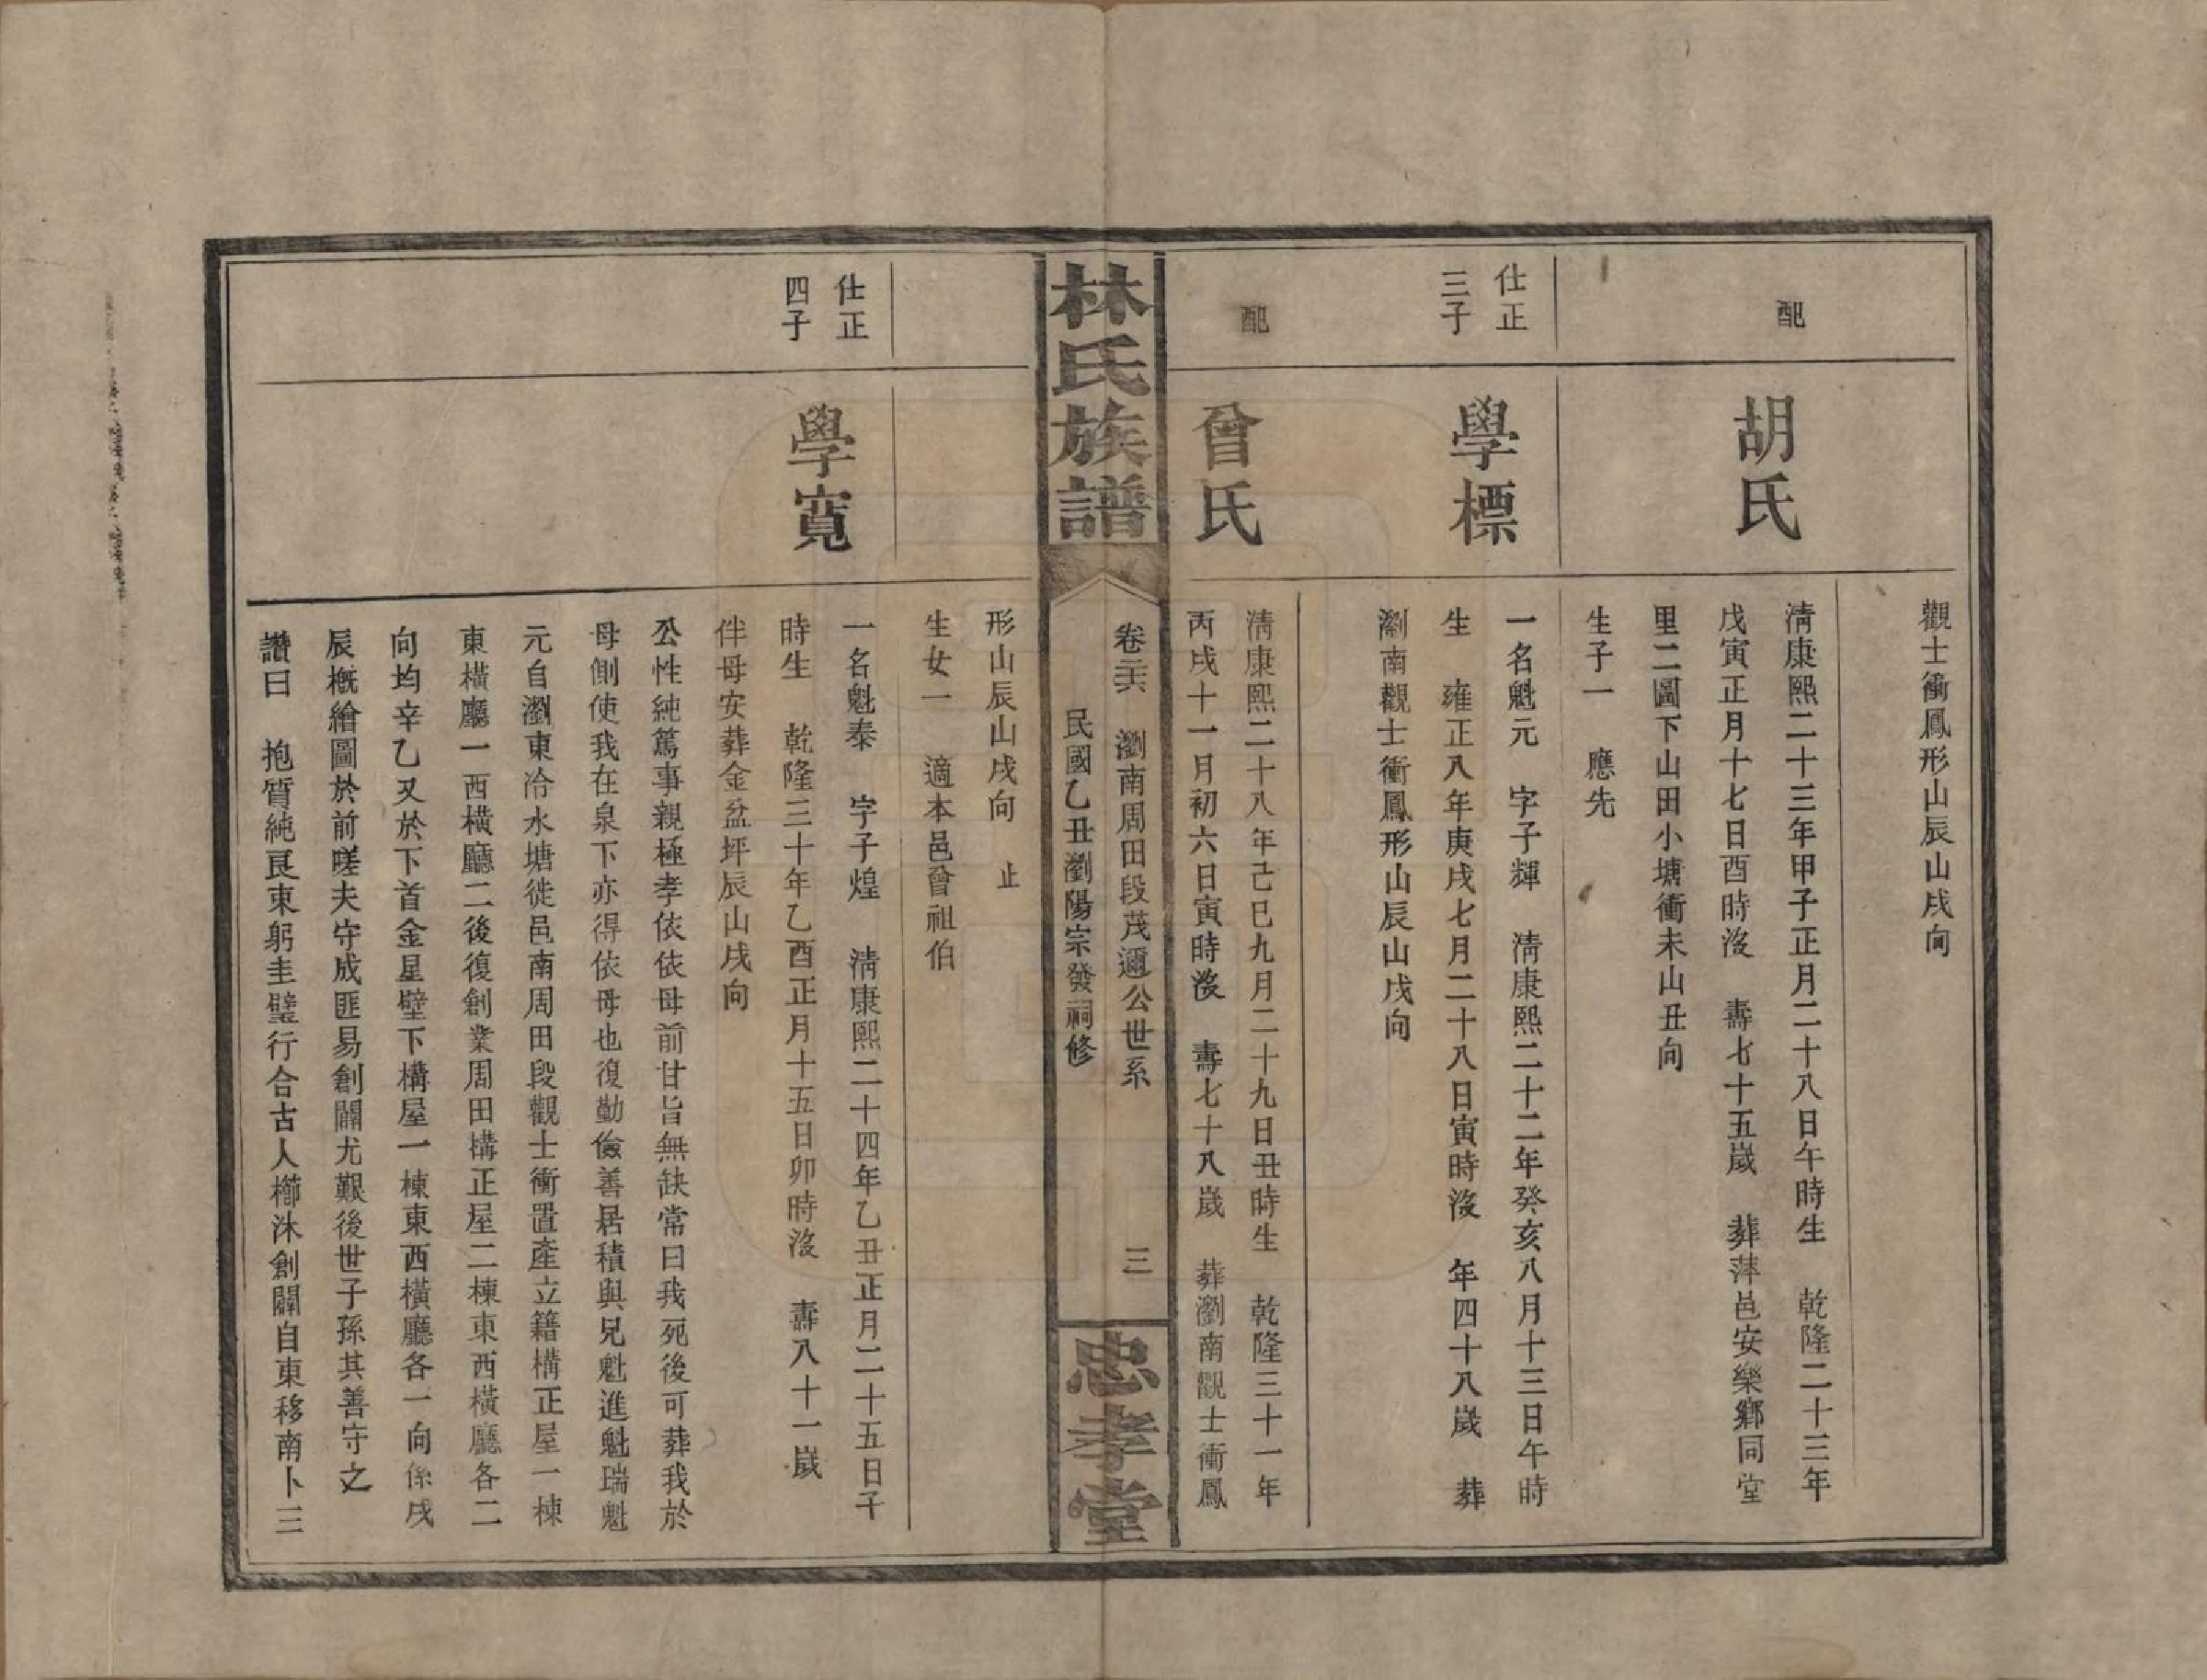 觀士衝鳳形山辰山戌向
配
胡氏
清康熙二十三年甲子正月二十八日午時生 乾隆二十三年
戊寅正月十七日酉時沒 壽七十五歲 葬萍邑安樂鄉同堂
里二圖下山田小塘衝未山丑向
生子一 應先
仕正
三子
學標
一名魁元 字子輝 清康熙二十二年癸亥八月十三日午時
生 雍正八年庚戌七月二十八日寅時沒 年四十八歲 葬
瀏南觀士衝鳳形山辰山戌向
配
曾氏
清康熙二十八年己巳九月二十九日丑時生 乾隆三十一年
丙戌十一月初六日寅時沒 壽七十八歲 葬瀏南觀士衝鳳
林氏族譜
卷二六 瀏南周田段茂邇公世系 三
民國乙丑瀏陽宗發祠修
忠孝堂
形山辰山戌向 止
生女一 適本邑曾祖伯
仕正
四子
學寬
一名魁泰 字子煌 清康熙二十四年乙丑正月二十五日子
時生 乾隆三十年乙酉正月十五日卯時沒 壽八十一歲
伴母安葬金盆坪辰山戌向
公性純篤事親極孝依依母前甘旨無缺常曰我死後可葬我於
母側使我在泉下亦得依母也復勤儉善居積與兄魁進魁瑞魁
元自瀏東冷水塘徙邑南周田段觀士衝置產立籍構正屋一棟
東橫廳一西橫廳二後復創業周田構正屋二棟東西橫廳各二
向均辛乙又於下首金星壁下構屋一棟東西橫廳各一向係戌
辰概繪圖於前嗟夫守成匪易創闢尤艱後世子孫其善守之
讚曰 抱質純良束躬圭璧行合古人櫛沐創闢自東移南卜三